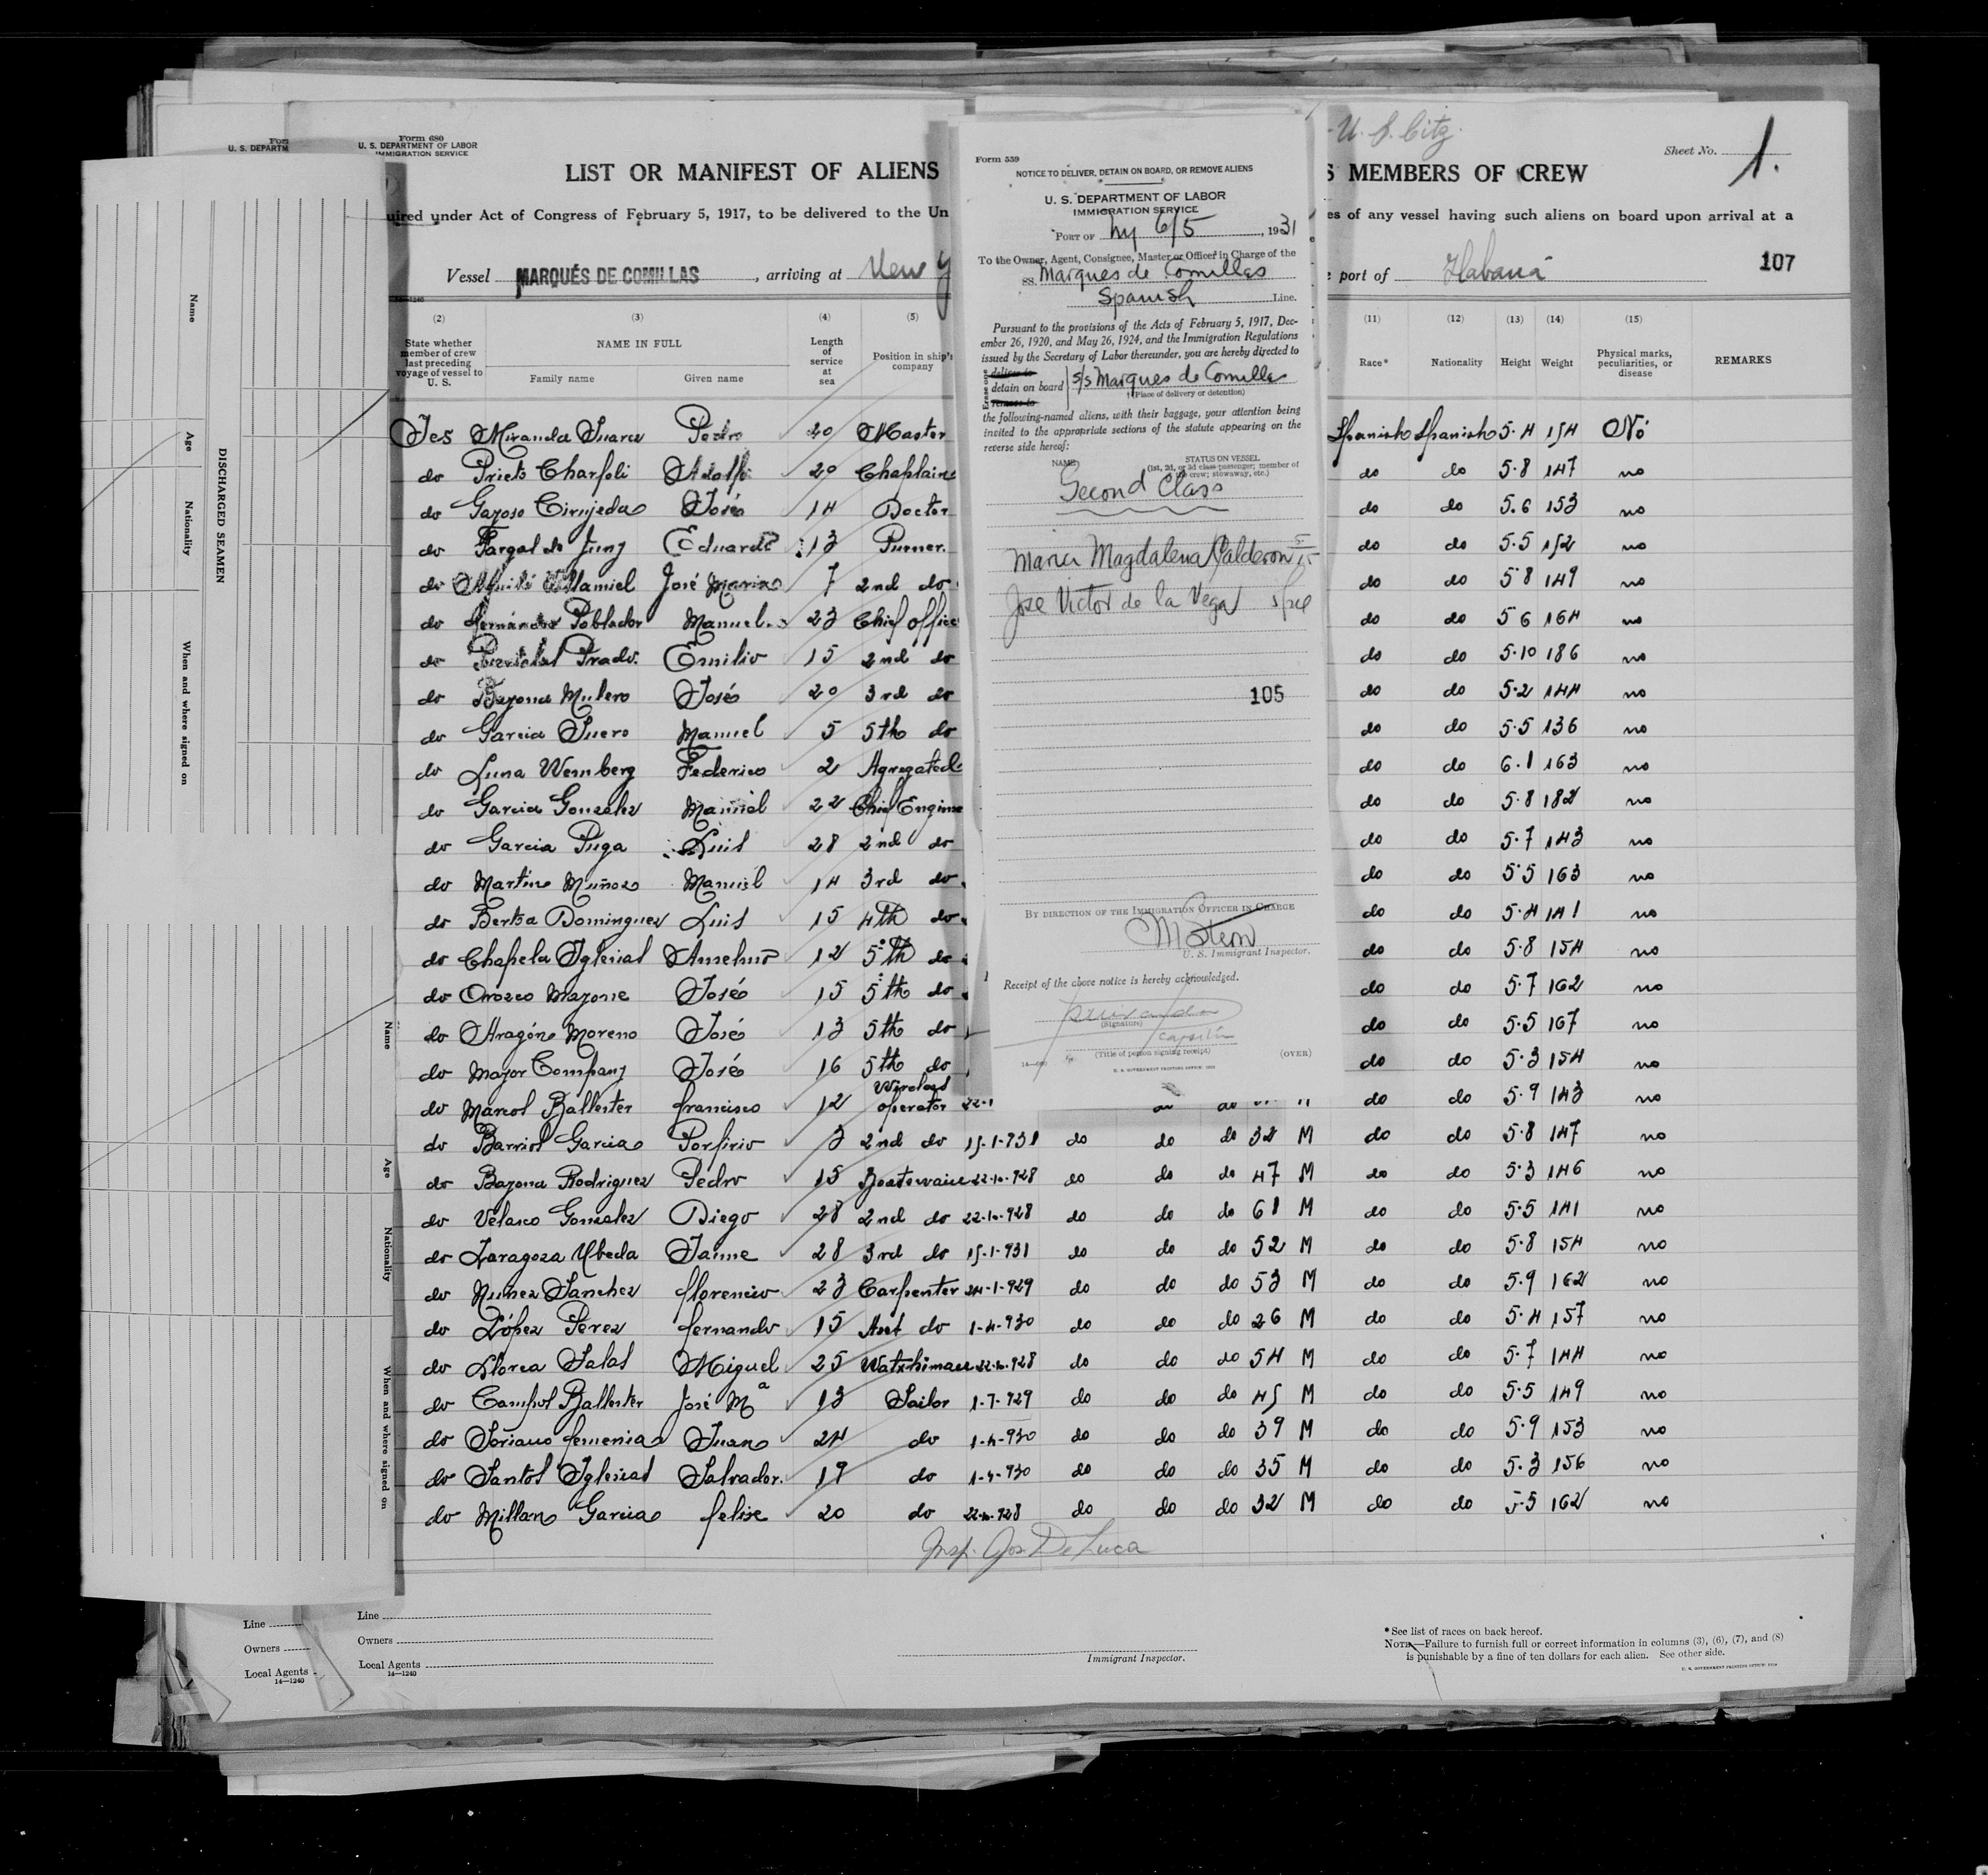 Form 680
U. S. DEPARTMENT OF LABOR
IMMIGRATION SERVICE
U. S. DEPARTM
LIST OR MANIFEST OF ALIENS
S MEMBERS OF CREW
U. S. Citz.
Sheet No. 1.
uired under Act of Congress of February 5, 1917, to be delivered to the Un
es of any vessel having such aliens on board upon arrival at a
Vessel MARQUÉS DE COMILLAS, arriving at New Y
port of Habana
107
(2) (3) (4) (5) (11) (12) (13) (14) (15)
State whether member of crew last preceding voyage of vessel to U. S.
NAME IN FULL
Family name Given name
Length of service at sea
Position in ship's company
Race* Nationality Height Weight
Physical marks, peculiarities, or disease
REMARKS
Yes Miranda Suarez Pedro 20 Master Spanish Spanish 5.4 154 No
do Prieto Adolfo 20 Chaplain do do 5.8 147 no
do Gayoso Cirujeda José 14 Doctor do do 5.6 153 no
do Eduardo 13 Purser. do do 5.5 152 no
do José Maria 7 2nd do do do 5 8 149 no
do Fernández Poblador Manuel 23 Chief office do do 5 6 164 no
do Prado Emilio 15 2nd do do do 5.10 186 no
do Bayona Mulero José 20 3rd do do do 5.2 144 no
do Garcia Suero Manuel 5 5th do do do 5.5 136 no
do Luna Wemberg Federico 2 Agregated do do 6.1 163 no
do Garcia Gonzalez Manuel 22 Chief Engine do do 5.8 182 no
do Garcia Puga Luis 28 2nd do do do 5.7 143 no
do Martin Muñoz Manuel 14 3rd do do do 5.5 163 no
do Bertoa Dominguez Luis 15 4th do do do 5.4 141 no
do Chapela Iglesias Anselmo 12 5th do do do 5.8 154 no
do Orozco Mazone José 15 5th do do do 5.7 162 no
do Aragón Moreno José 13 5th do do do 5.5 167 no
do Mayor Company José 16 5th do do do 5.3 154 no
do Marcos Ballester francisco 12 Wireless operator 22-1 do do 5.9 143 no
do Barrios Garcia Porfirio 3 2nd do 15-1-931 do do do 32 M do do 5.8 147 no
do Bayona Rodriguez Pedro 15 Boatswain 22-10-928 do do do 47 M do do 5.3 146 no
do Velasco Gonzalez Diego 28 2nd do 22-10-928 do do do 61 M do do 5.5 141 no
do Zaragoza Ubeda Jaime 28 3rd do 15-1-931 do do do 52 M do do 5.8 154 no
do Nuñez Sanchez florencio 23 Carpenter 24-1-929 do do do 53 M do do 5.9 162 no
do López Perez fernando 15 Asst do 1-4-930 do do do 26 M do do 5.4 157 no
do Llorca Salas Miguel 25 Watchiman 22-10-928 do do do 54 M do do 5.7 144 no
do Campos Ballester José Mª 13 Sailor 1-7-929 do do do 45 M do do 5.5 149 no
do Soriano femenias Juan 24 do 1-4-930 do do do 39 M do do 5.9 153 no
do Santos Iglesias Salvador 19 do 1-4-930 do do do 35 M do do 5.3 156 no
do Millan Garcia felix 20 do 22-10-928 do do do 32 M do do 5.5 162 no
Insp. Jos. De Luca
Line
Owners
Local Agents
14—1240
Line
Owners
Local Agents
14—1240
Immigrant Inspector.
*See list of races on back hereof.
NOTE.—Failure to furnish full or correct information in columns (3), (6), (7), and (8)
is punishable by a fine of ten dollars for each alien. See other side.
Form 559
NOTICE TO DELIVER, DETAIN ON BOARD, OR REMOVE ALIENS
U. S. DEPARTMENT OF LABOR
IMMIGRATION SERVICE
PORT OF Ny 6/5, 1931
To the Owner, Agent, Consignee, Master or Officer in Charge of the
SS. Marques de Comillas
Spanish Line.
Pursuant to the provisions of the Acts of February 5, 1917, Dec-
ember 26, 1920, and May 26, 1924, and the Immigration Regulations
issued by the Secretary of Labor thereunder, you are hereby directed to
Erase one
deliver to
detain on board
remove to
s/s Marques de Comillas
(Place of delivery or detention)
the following-named aliens, with their baggage, your attention being
invited to the appropriate sections of the statute appearing on the
reverse side hereof:
NAME
STATUS ON VESSEL
(1st, 2d, or 3d class passenger; member of
crew; stowaway, etc.)
Second Class
Maria Magdalena Calderon
Jose Victor de la Vega
105
BY DIRECTION OF THE IMMIGRATION OFFICER IN CHARGE
U. S. Immigrant Inspector.
Receipt of the above notice is hereby acknowledged.
(Signature)
(Title of person signing receipt)
(OVER)
U. S. GOVERNMENT PRINTING OFFICE
DISCHARGED SEAMEN
Name
Age
Nationality
When and where signed on
Name
Age
Nationality
When and where signed on